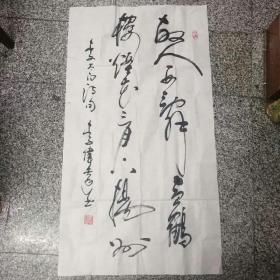 故人西辭黃鶴
樓烟花三月下揚州
李太白詩句